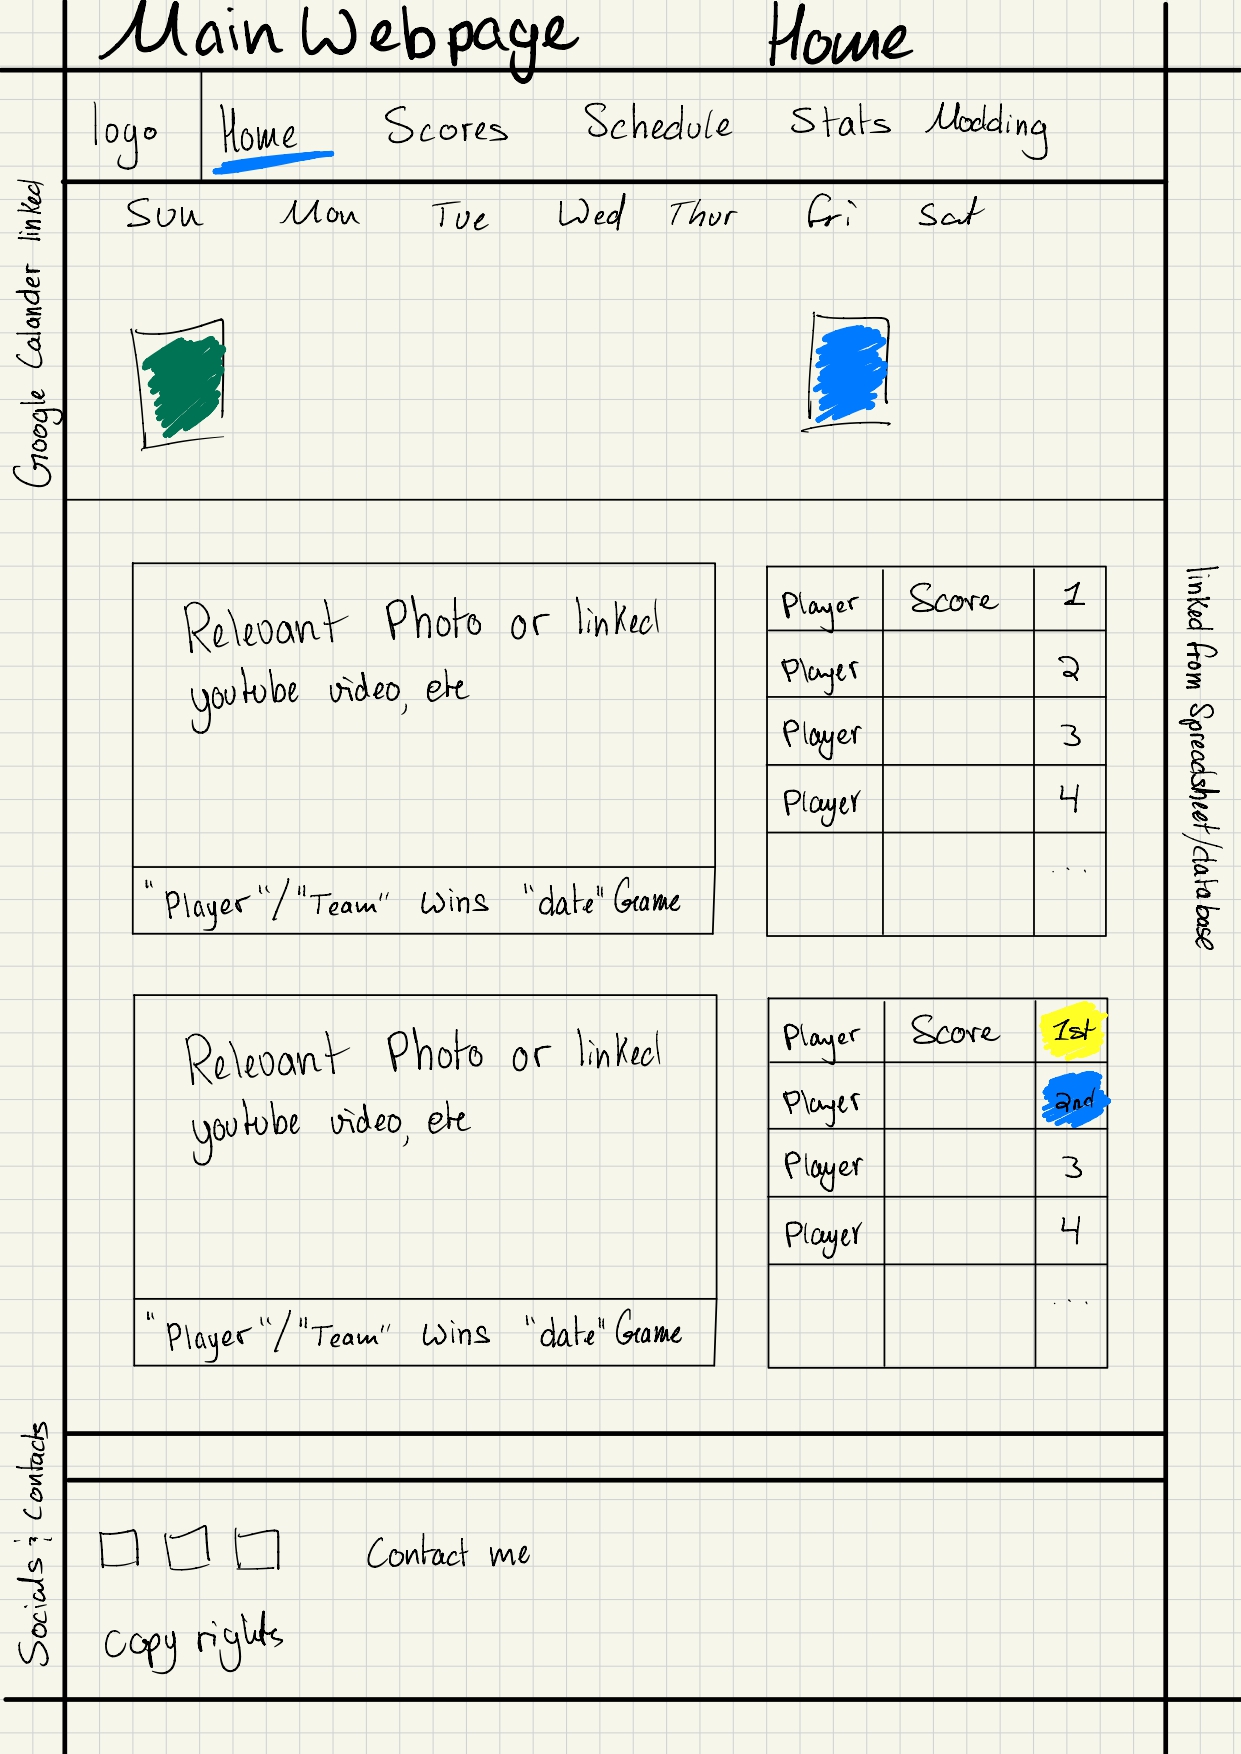 Main Webpage Home
logo Home Scores Schedule Stats Modding
Google Calander linked
Sun Mon Tue Wed Thur Fri Sat
Relevant Photo or linked
youtube video, etc
"Player"/"Team" wins "date" Game
Player Score 1
Player 2
Player 3
Player 4
...
linked from Spreadsheet/database
Relevant Photo or linked
youtube video, etc
"Player"/"Team" wins "date" Game
Player Score 1st
Player 2nd
Player 3
Player 4
...
Socials & Contacts
Contact me
Copy rights